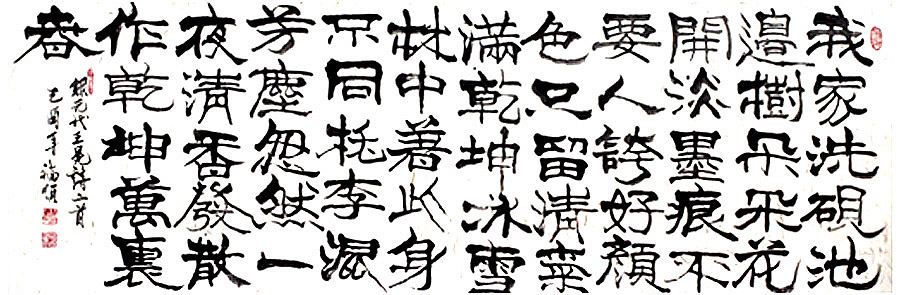 我家洗硯池
邊樹朵朵花
開淡墨痕不
要人誇好顏
色只留清菜
滿乾坤冰雪
林中著此身
不同桃李混
芳塵忽然一
夜清香發散
作乾坤萬裏
春
錄元代王冕詩二首
己酉年